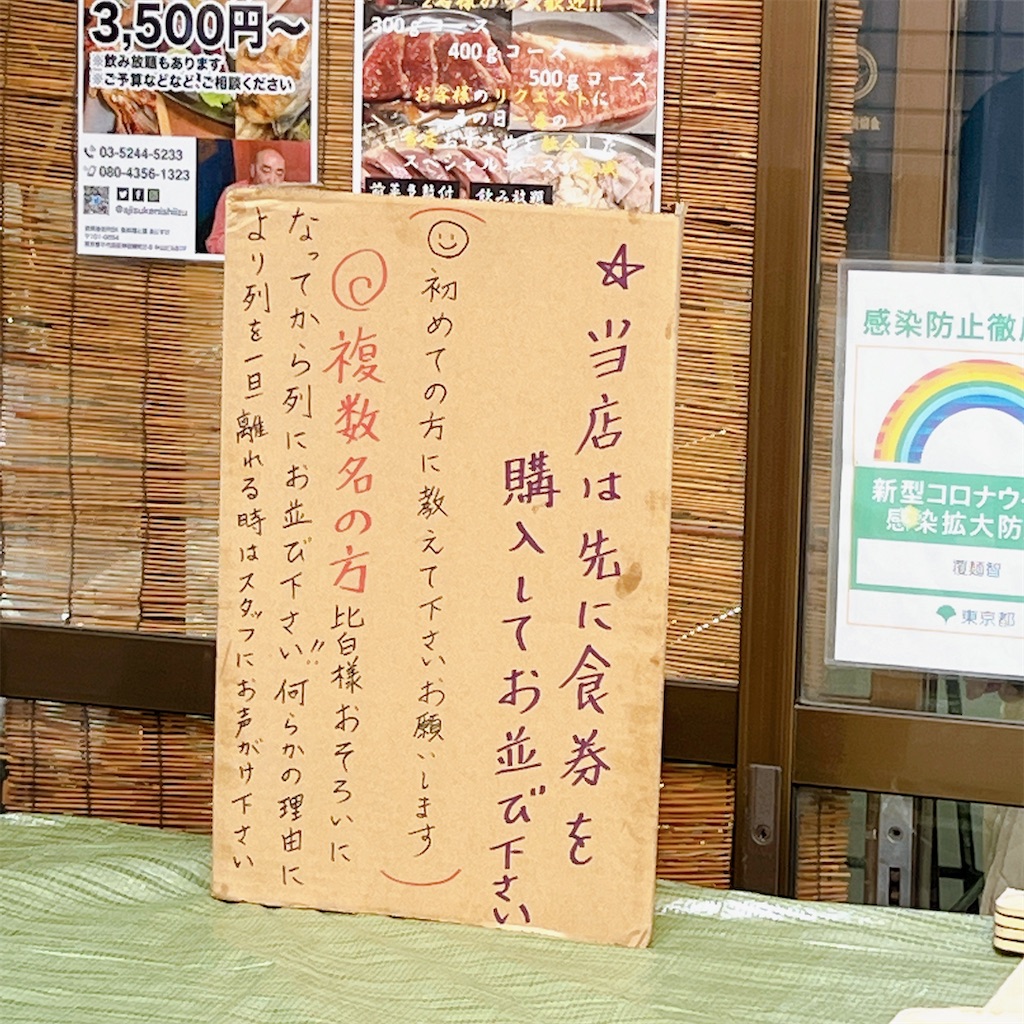 3,500円～
※飲み放題もあります。
※ご予算などなど、ご相談ください
03-5244-5233
080-4356-1323
@ajisukenishiizu
300gコース
400gコース
500gコース
お客様のリクエストに
飲み放題
☆当店は先に食券を
購入してお並び下さい
初めての方に教えて下さいお願いします
複数名の方皆様おそろいに
なってから列にお並び下さい!!何らかの理由に
より列を一旦離れる時はスタッフにお声がけ下さい
感染防止徹底
新型コロナウイ
感染拡大防
覆麺智
東京都